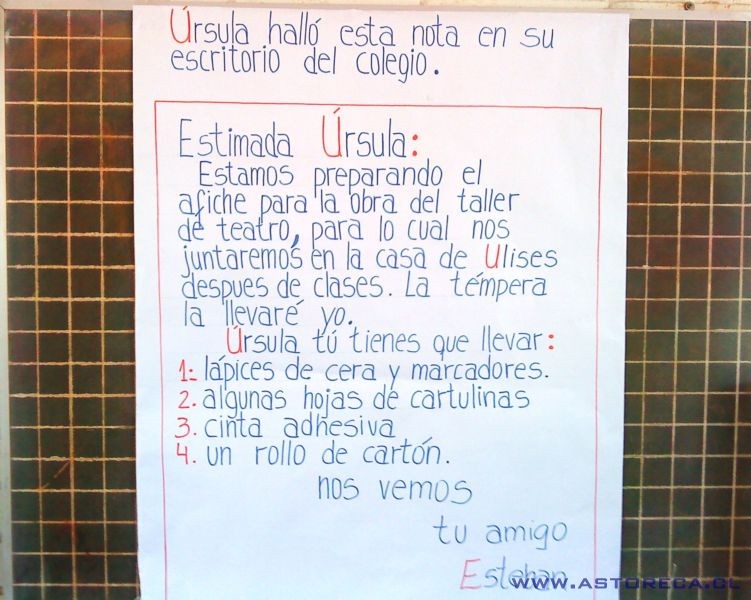 Úrsula halló esta nota en su
escritorio del colegio.
Estimada Úrsula:
Estamos preparando el
afiche para la obra del taller
de teatro, para lo cual nos
juntaremos en la casa de Ulises
despues de clases. La témpera
la llevaré yo.
Úrsula tú tienes que llevar:
1. lápices de cera y marcadores.
2. algunas hojas de cartulinas
3. cinta adhesiva
4. un rollo de cartón.
nos vemos
tu amigo
Esteban
WWW.ASTORECA.CL